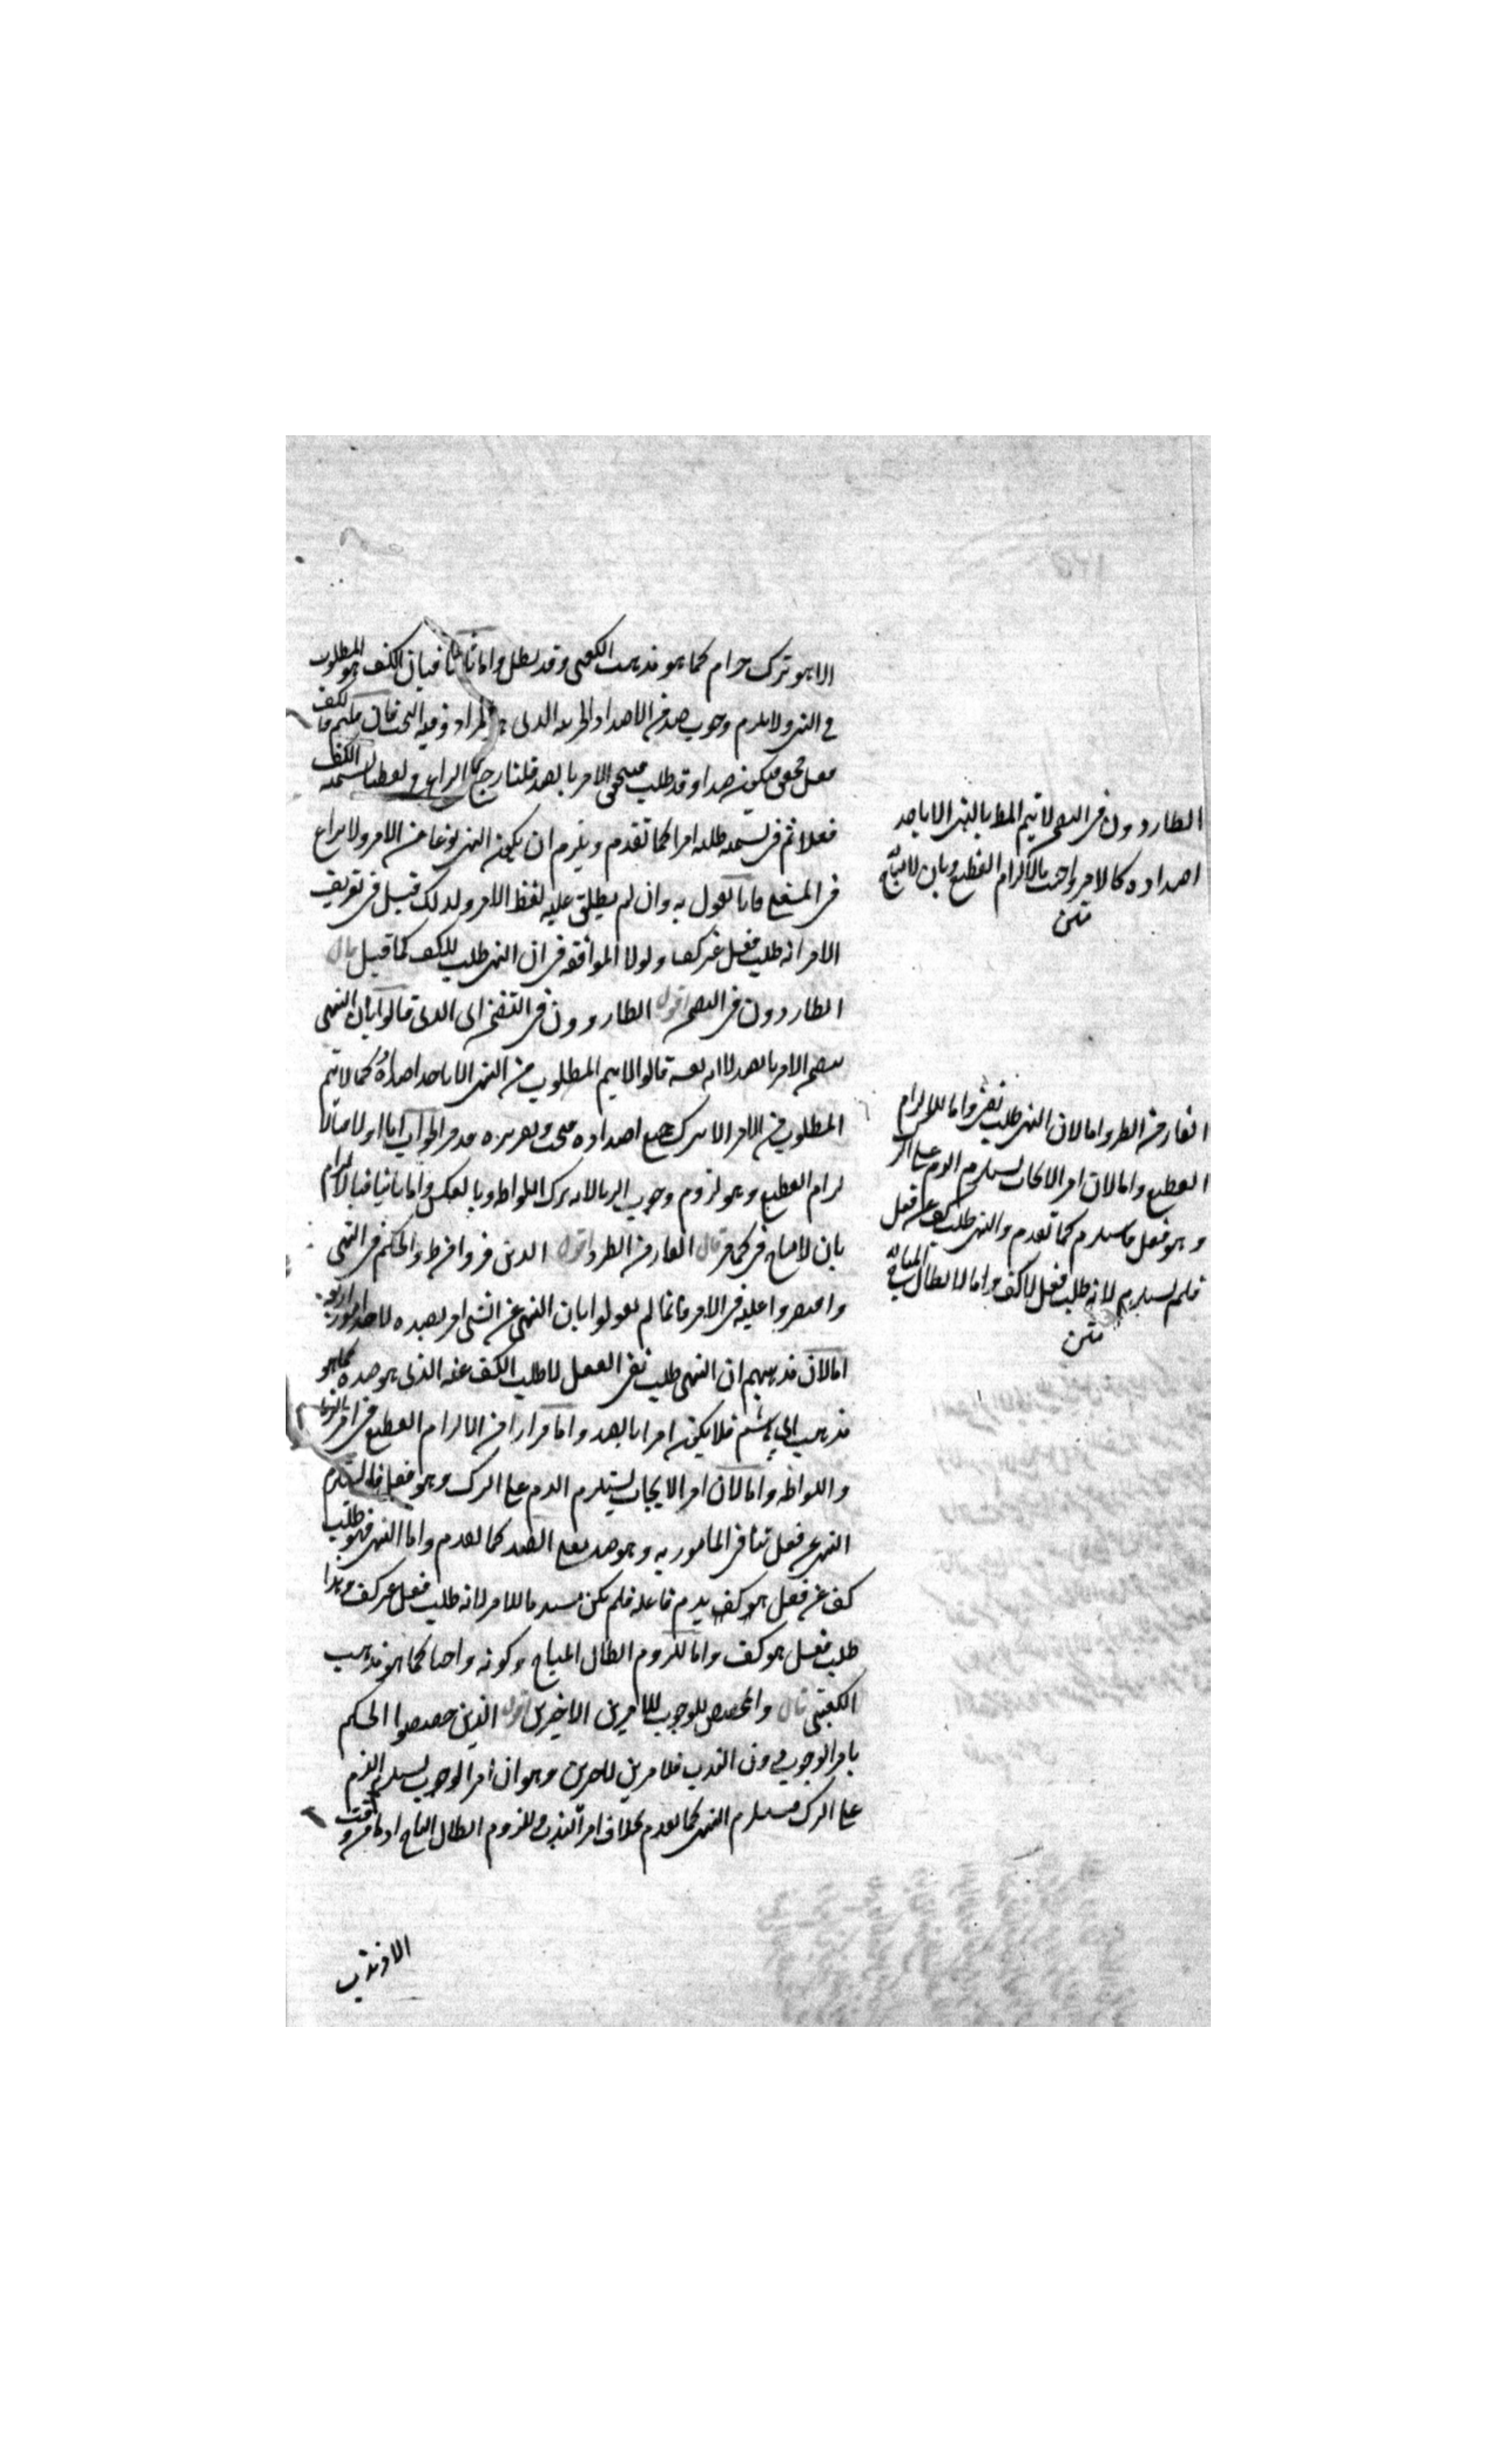 الا هو ترك حرام كما هو مذهب الكعبي وقد بطل واما ثانيا فبان الكف هو المطلوب
في النهي ولا يلزم وجوب ضد من الاضداد الجزئية الذي هو المراد وفيه البحث فان قلتم فالكف
فعل فيكون ضدا وقد طلب فتحقق الامر بالضد قلنا رجع النزاع لفظيا لتسمية الكف
فعلا ثم في تسمية طلبه امرا كما تقدم ويلزم ان يكون النهي نوعا من الامر ولا نزاع
في المعنى فانا نقول به وان لم يطلق عليه لفظ الامر ولذلك قيل في تعريف
الامر انه طلب فعل غير كف ولولا الموافقة في ان النهي طلب للكف كما قيل قال
الطاردون في التضمن اقول الطاردون في التضمن اي الذي قالوا بان النهي
يتضمن الامر بالضد لا انه نفسه قالوا لا يتم المطلوب من النهي الا باحد اضداده كما لا يتم
المطلوب من الامر الا بترك جميع اضداده فيجب وتقريره قد مر الجواب اما اولا فبالا
لزام الفظيع وهو لزوم وجوب الزنا لانه ترك اللواط وبالعكس واما ثانيا فبالالزام
بان لا مباح في كما مر قال الفار من الطرد اقول الذين فروا من طرد الحكم في النهي
واقتصروا عليه في الامر فانما لم يقولوا بان النهي عن الشي امر بضده لاحد امور اربعة
اما لان مذهبهم ان النهي طلب نفي الفعل لا طلب الكف عنه الذي هو ضده كما هو
مذهب ابي هاشم فلا يكون امرا بالضد واما فرارا من الالزام الفظيع في امر بالزنا
واللواطة واما لان امر الايجاب يستلزم الذم على الترك وهو فعل فاستلزم
النهي عن فعل ينافي المامور به وهو ضد فعل الضد كما تقدم واما النهي فهو طلب
كف عن فعل هو كف يذم فاعله فلم يكن مستلزما للامر لانه طلب فعل غير كف وهذا
طلب فعل هو كف واما للزوم ابطال المباح وكونه واجبا كما هو مذهب
الكعبي قال والمخصص للوجوب للامرين الاخيرين اقول الذين خصصوا الحكم
بامر الوجوب دون الندب فلامرين الاخرين وهو ان امر الوجوب يستلزم الذم
على الترك فيستلزم النهي كما تقدم بخلاف امر الندب وللزوم ابطال المباح اذ ما من وقت
الا وندب
الطاردون في التضمن لا يتم المط بالنهي الا باحد
اضداده كالامر واجيب بالالزام الفظيع وبان لا مباح
متن
الفار من الطرد اما لان النهي طلب نفي واما للالزام
الفظيع واما لان امر الايجاب يستلزم الذم على الترك
وهو فعل فاستلزم كما تقدم والنهي طلب كف عن فعل
فلم يستلزم لانه طلب فعل لا كف واما لابطال المباح
متن